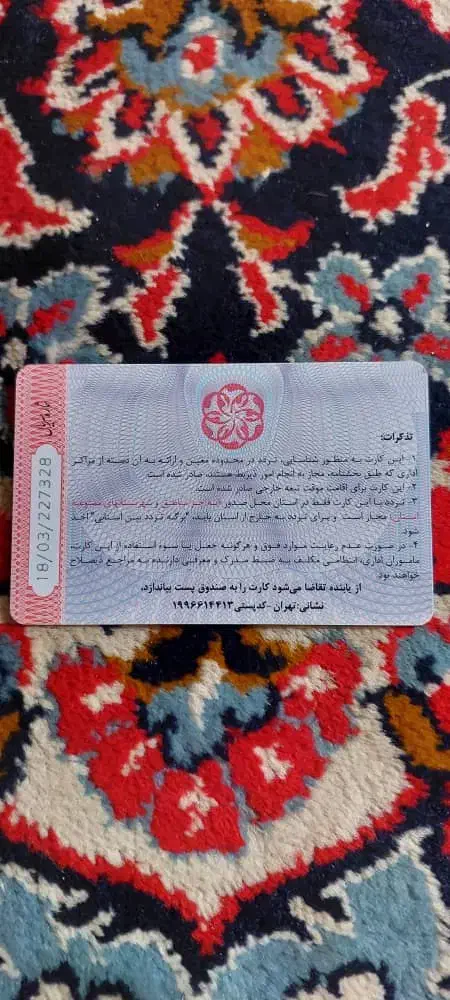 تذکرات:
۱- این کارت به منظور شناسایی، تردد در محدوده معین و ارائه به آن دسته از مراکز
اداری که طبق بخشنامه، مجاز به انجام امور ذیربط هستند، صادر شده است.
۲- این کارت برای اقامت موقت تبعه خارجی صادر شده است.
۳- تردد با این کارت فقط در استان محل صدور (به جز مناطق و شهرستانهای ممنوعه
استان)، مجاز است و برای تردد به خارج از استان باید، "برگه تردد بین استانی" اخذ
شود.
۴- در صورت عدم رعایت موارد فوق و هرگونه جعل یا سوء استفاده از این کارت،
ماموران اداری، انتظامی مکلف به ضبط مدرک و معرفی دارنده به مراجع ذیصلاح
خواهند بود.
از یابنده تقاضا می‌شود کارت را به صندوق پست بیاندازد.
نشانی: تهران - کدپستی ۱۹۹۶۶۱۴۴۱۳
18/03/227328